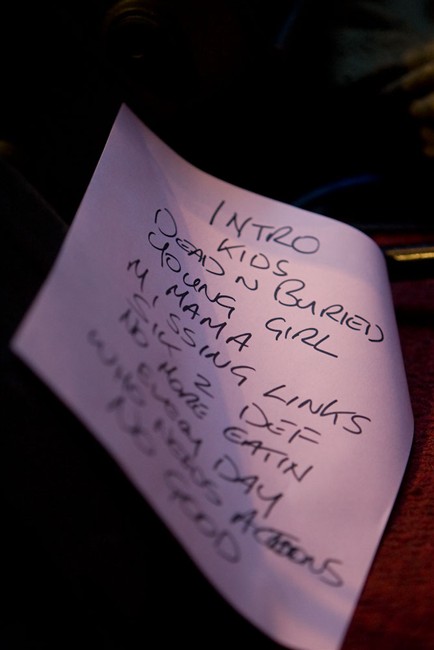 INTRO
KIDS
DEAD N BURIED
YOUNG GIRL
M, MAMA
MISSING LINKS
SICK 2 DEF
NO MORE EATIN
EVERY DAY
WHO NEEDS ACTIONS
NO GOOD